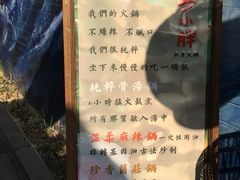 我們的火鍋
不燥辣 不膩口
我們很純粹
坐下來慢慢的吃一頓飯
純粹骨湯鍋
6小時猛火熬煮
所有膠質融入湯中
溫柔麻辣鍋 一次性用油
炸料蒸回油古法炒制
珍香菌菇鍋